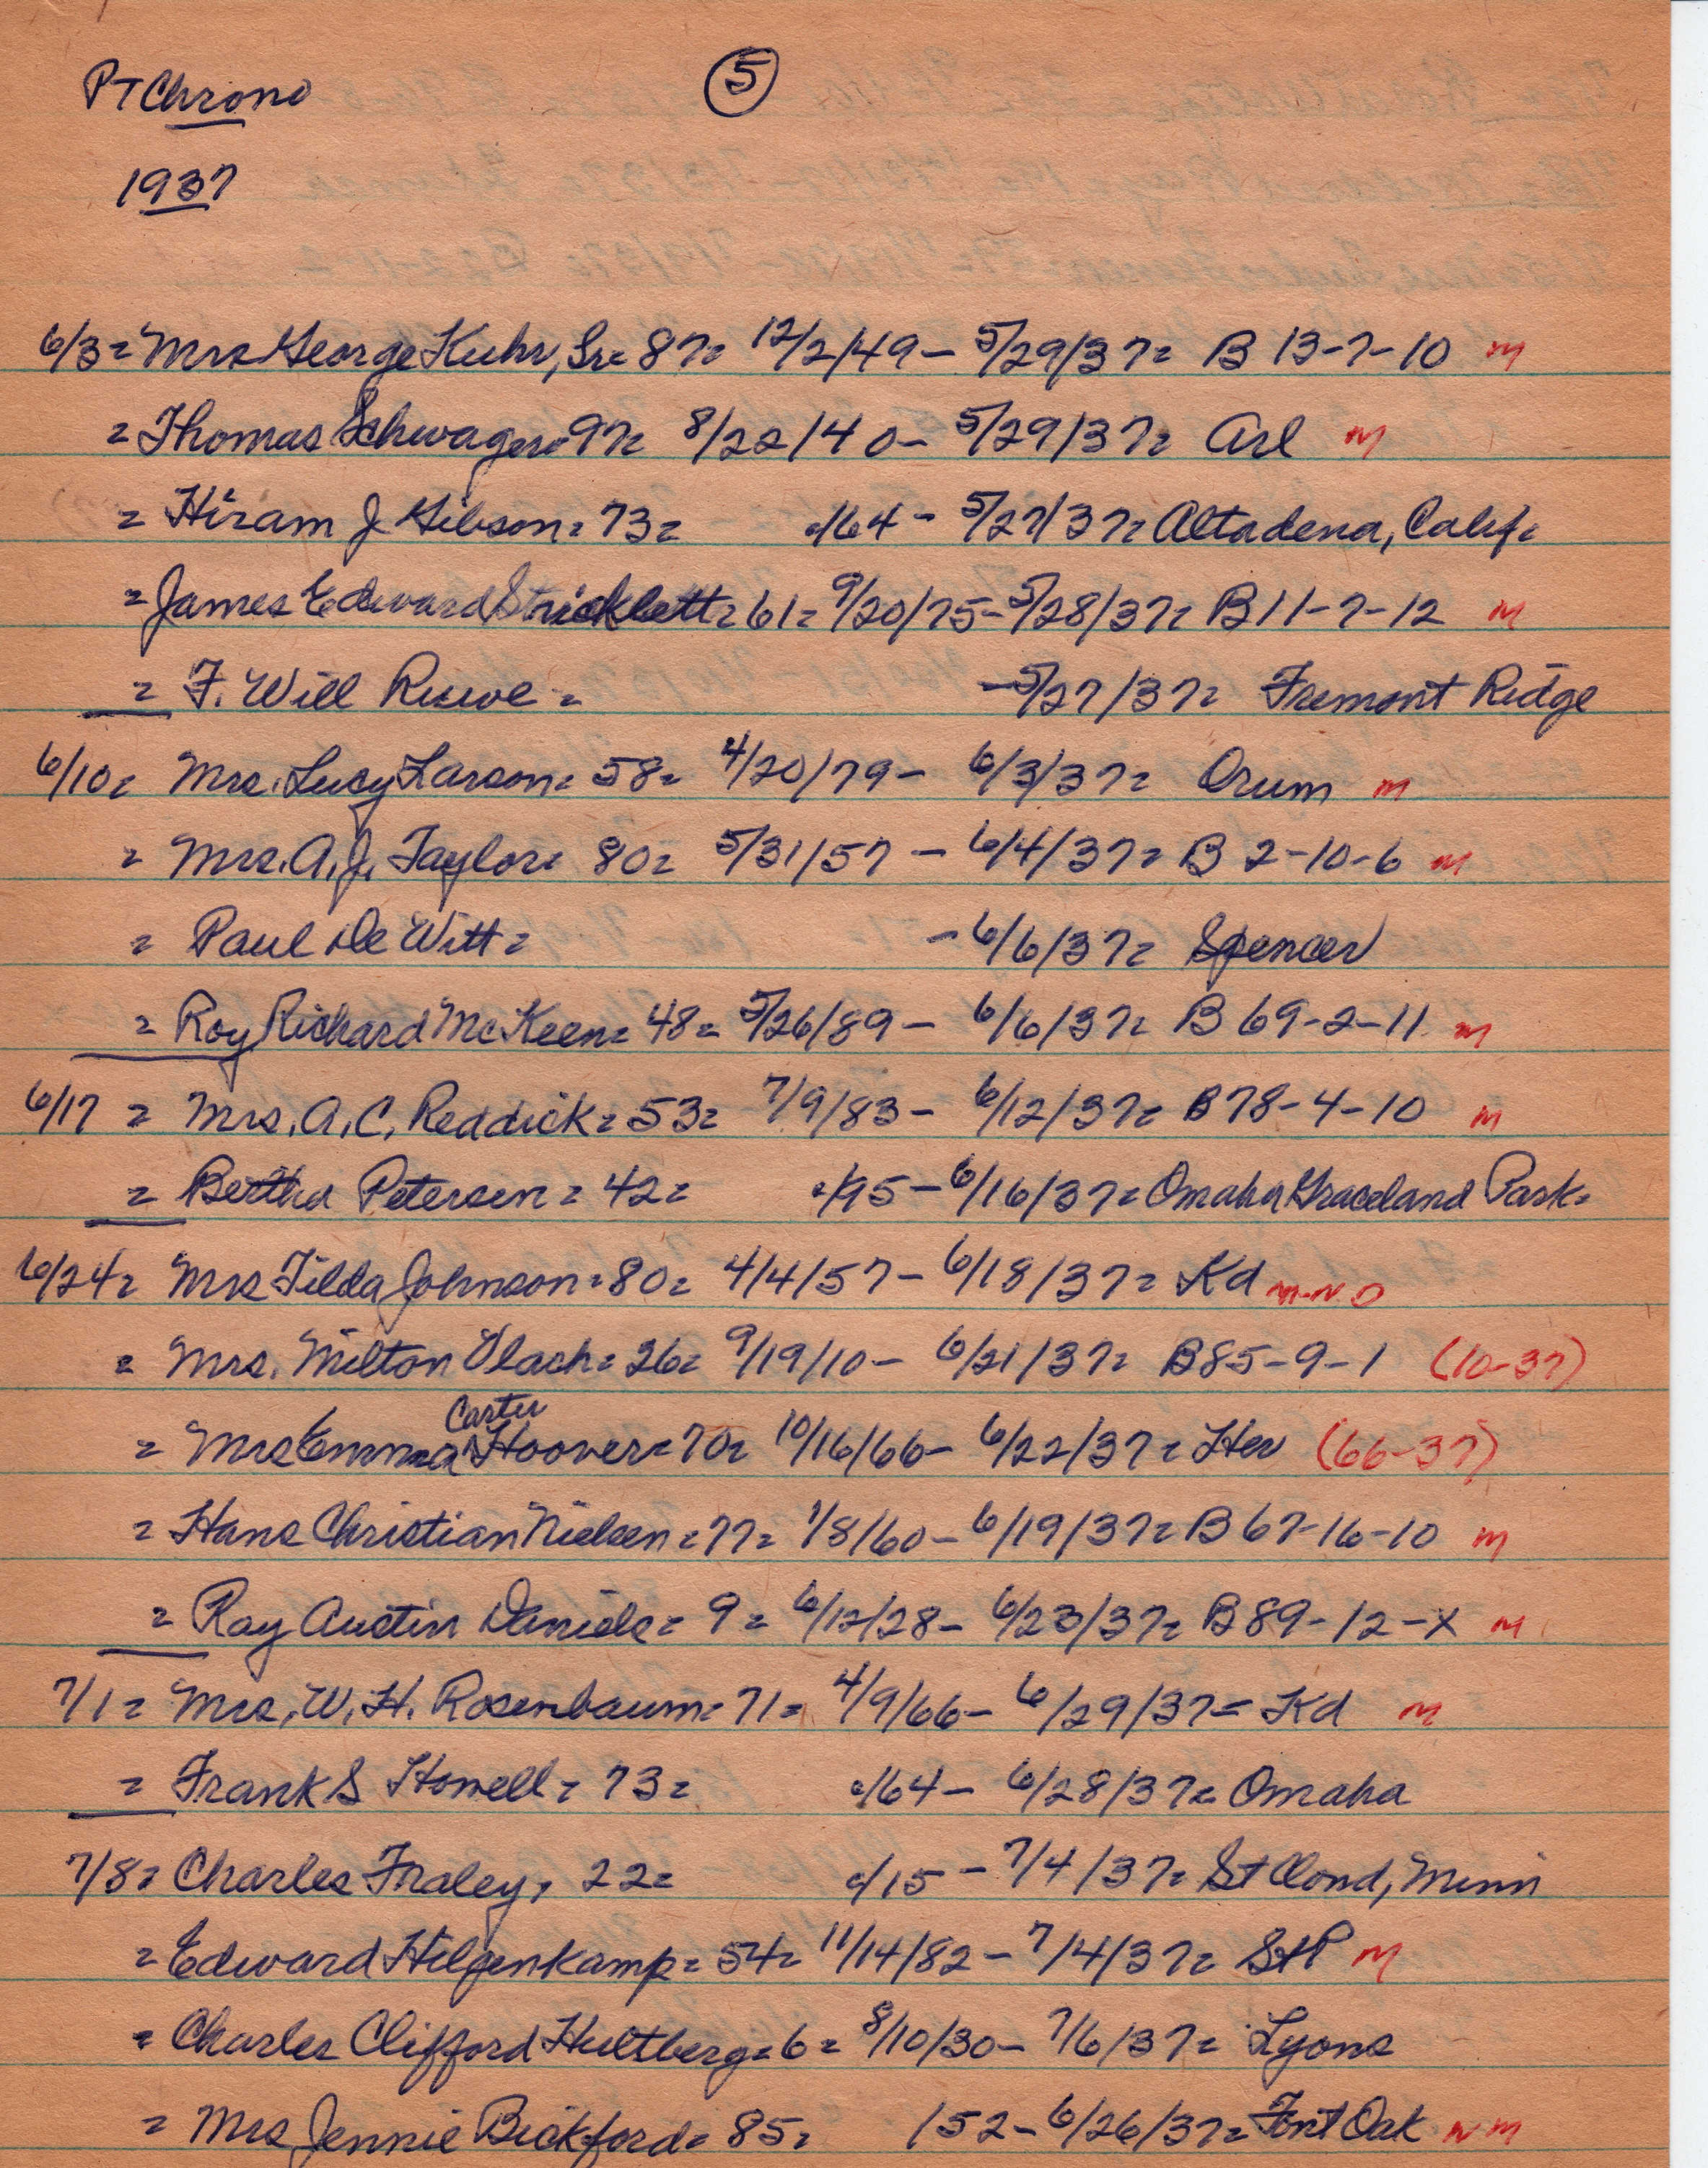 PT Chrono ⑤
1937
6/3 = Mrs George Kuhr, Sr = 87 = 12/2/49 - 5/29/37 = B 13-7-10 M
= Thomas Schwager = 97 = 8/22/40 - 5/29/37 = Arl M
= Hiram J Gibson = 73 = c/64 - 5/27/37 = Altadena, Calif =
= James Edward Stricklett = 61 = 9/20/75 - 5/28/37 = B 11-7-12 M
= F. Will Ruwe = - 5/27/37 = Fremont Ridge
6/10 = Mrs. Lucy Larson = 58 = 4/20/79 - 6/3/37 = Orum M
= Mrs. A. J. Taylor = 80 = 5/31/57 - 6/4/37 = B 2-10-6 M
= Paul De Witt = - 6/6/37 = Spencer
= Roy Richard McKeen = 48 = 5/26/89 - 6/6/37 = B 69-2-11 M
6/17 = Mrs. A. C. Reddick = 53 = 7/9/83 - 6/12/37 = B 78-4-10 M
= Bertha Petersen = 42 = c/95 - 6/16/37 = Omaha Graceland Park =
6/24 = Mrs Tilda Johnson = 80 = 4/4/57 - 6/18/37 = Kd M-NO
= Mrs. Milton Vlach = 26 = 9/19/10 - 6/21/37 = B 85-9-1 (10-37)
= Mrs Emma ^Carter Hoover = 70 = 10/16/66 - 6/22/37 = Her (66-37)
= Hans Christian Nielsen = 77 = 1/8/60 - 6/19/37 = B 67-16-10 M
= Ray Austin Daniels = 9 = 6/12/28 - 6/23/37 = B 89-12-X M
7/1 = Mrs. W. H. Rosenbaum = 71 = 4/9/66 - 6/29/37 = Kd M
= Frank S Howell = 73 = c/64 - 6/28/37 = Omaha
7/8 = Charles Fraley, 22 = c/15 - 7/4/37 = St Cloud, Minn
= Edward Hilgenkamp = 54 = 11/14/82 - 7/4/37 = StP M
= Charles Clifford Hultberg = 6 = 8/10/30 - 7/6/37 = Lyons
= Mrs Jennie Bickford = 85 = /52 - 6/26/37 = Font Oak NM